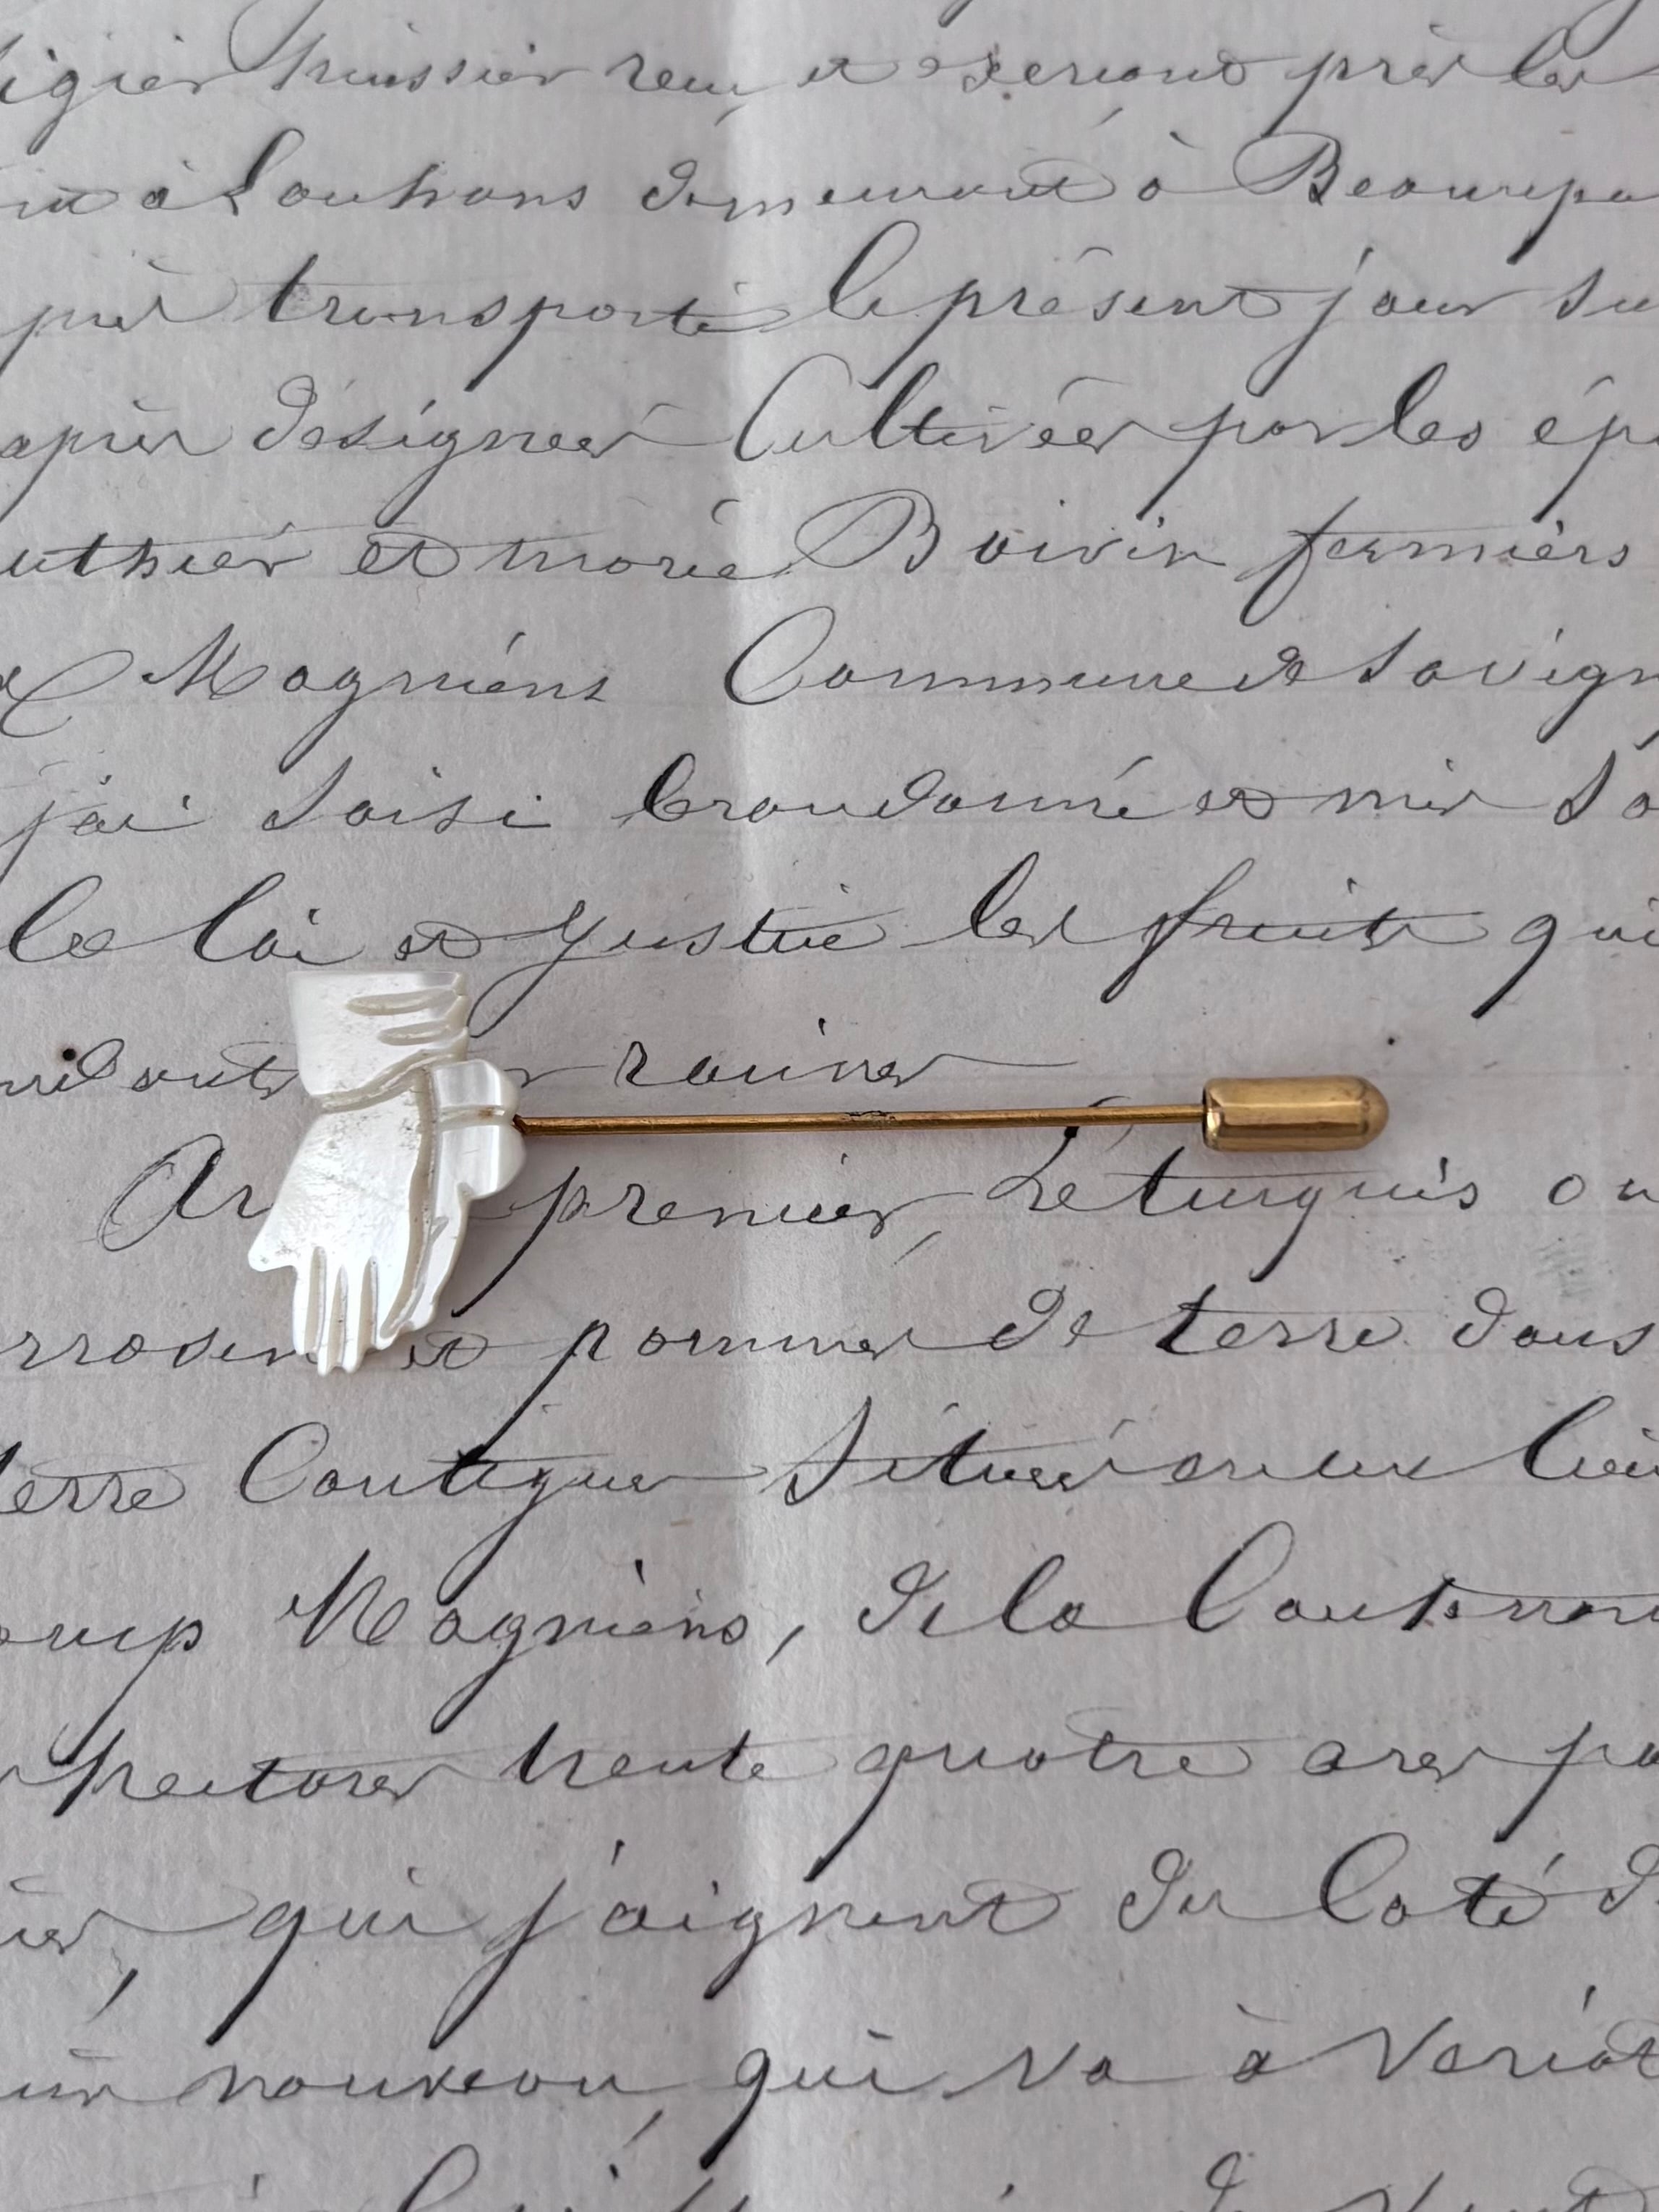 huissier reçu et exerçant près le
à Louhans demeurant à Beaurepa
transporté le présent jour su
après désignées Cultivées par les épo
uthier et marie Boivin fermiers
Magniens Commune de Savign
j'ai saisi brandonné et mis so
la loi et justice les fruits qui
racines
premier, Le turquis ou
et pommes de terre dans
terre Contigues Situées au lieu
Magniens, de la Contenan
hectares trente quatre ares pa
qui joignent du Coté d
nouveau, qui va à Vériat